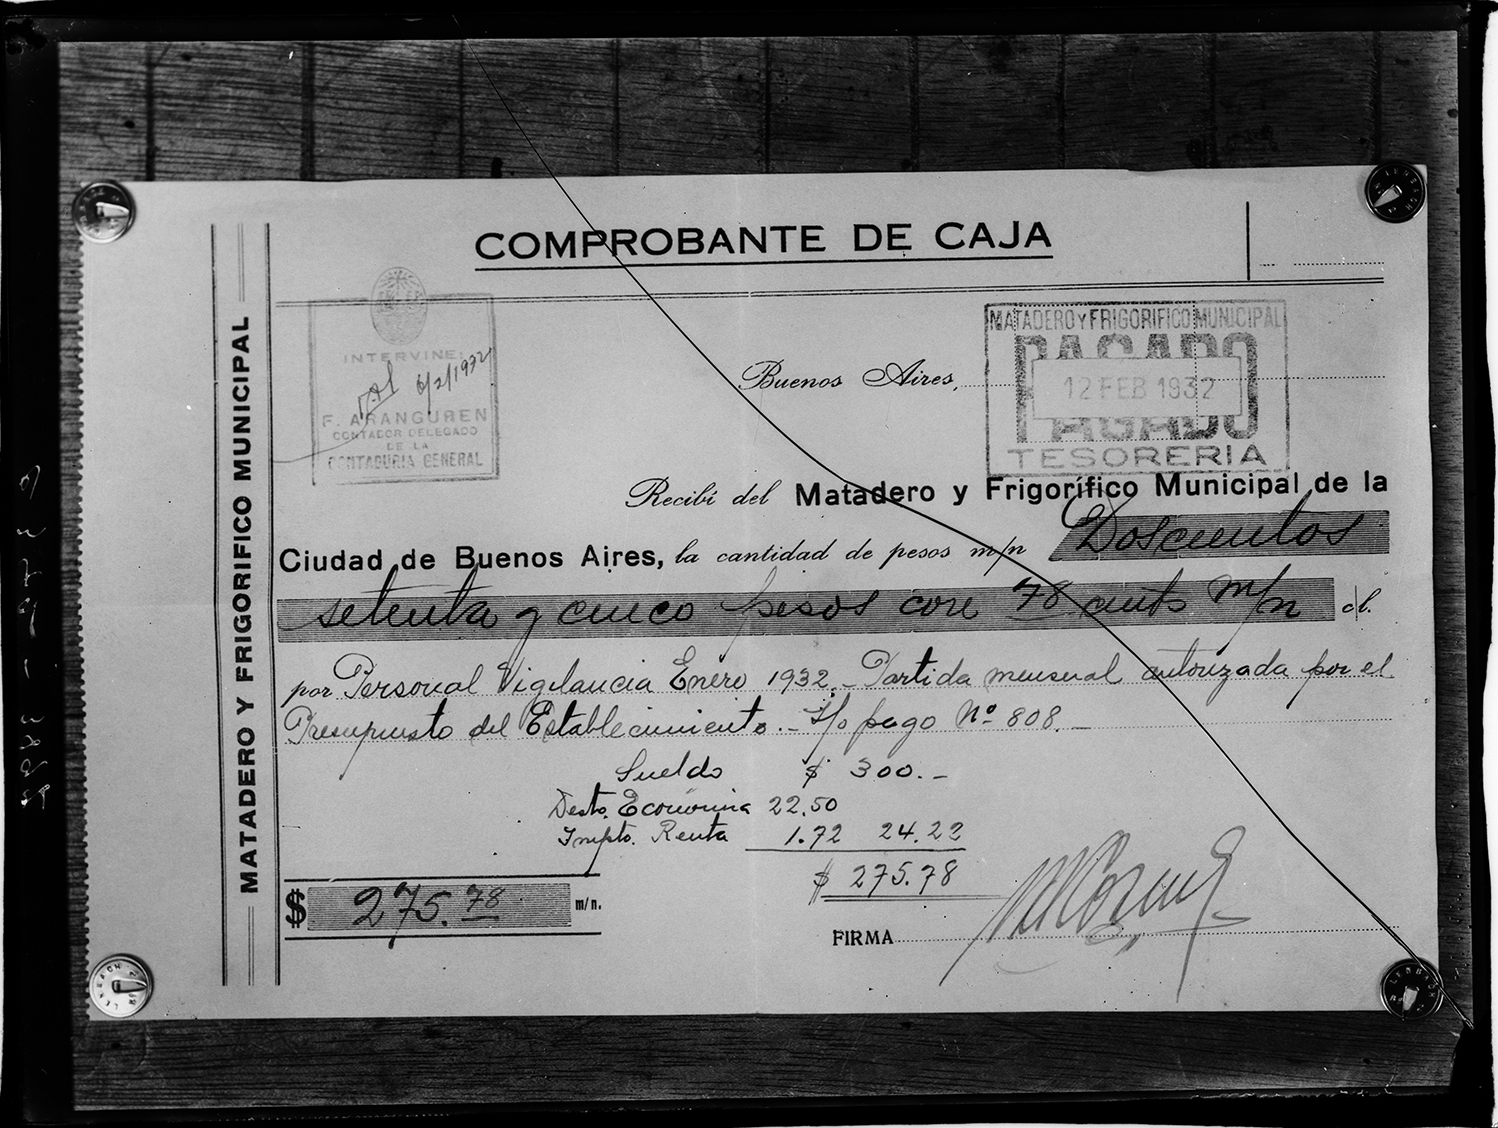 COMPROBANTE DE CAJA
MATADERO Y FRIGORIFICO MUNICIPAL
INTERVINE:
6/2/1932
F. ARANGUREN
CONTADOR DELEGADO
DE LA
CONTADURIA GENERAL
MATADERO Y FRIGORIFICO MUNICIPAL
PAGADO
12 FEB 1932
PAGADO
TESORERIA
Buenos Aires,
Recibí del Matadero y Frigorífico Municipal de la
Ciudad de Buenos Aires, la cantidad de pesos m/n Doscientos
setenta y cinco pesos con 78 cents m/n c/l.
por Personal Vigilancia Enero 1932.- Partida mensual autorizada por el
Presupuesto del Establecimiento.- O/o pago Nº 808.-
Sueldo $ 300.-
Desto. Economia 22.50
Impto. Renta 1.72 24.22
$ 275.78
$ 275.78 m/n.
FIRMA